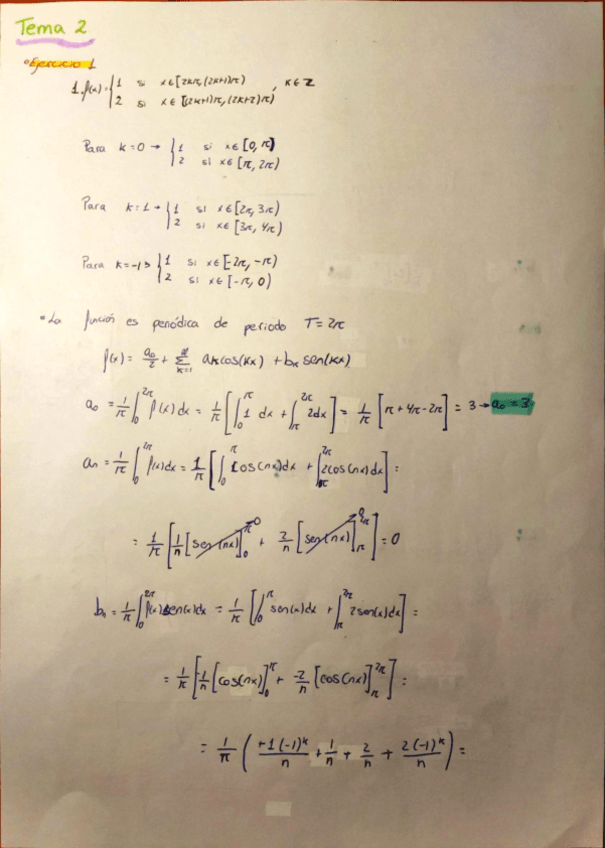 Tema 2
•Ejercicio 1
1. f(x) = { 1 si x ∈ [2kπ, (2k+1)π) , k ∈ Z
2 si x ∈ [(2k+1)π, (2k+2)π)
Para k=0 → { 1 si x ∈ [0, π)
2 si x ∈ [π, 2π)
Para k=1 → { 1 si x ∈ [2π, 3π)
2 si x ∈ [3π, 4π)
Para k=-1 → { 1 si x ∈ [-2π, -π)
2 si x ∈ [-π, 0)
•La función es periódica de periodo T = 2π
f(x) = a₀/2 + Σ_{k=1} aₖcos(kx) + bₖ sen(kx)
a₀ = 1/π ∫₀^{2π} f(x) dx = 1/π [∫₀^π 1 dx + ∫_π^{2π} 2dx] = 1/π [π + 4π - 2π] = 3 → a₀ = 3
aₙ = 1/π ∫₀^{2π} f(x)dx = 1/π [∫₀^π 1cos(nx)dx + ∫_π^{2π} 2cos(nx)dx] =
= 1/π [1/n [sen(nx)]₀^π + 2/n [sen(nx)]_π^{2π}] = 0
bₙ = 1/π ∫₀^{2π} f(x)sen(x)dx = 1/π [∫₀^π sen(x)dx + ∫_π^{2π} 2sen(x)dx] =
= 1/π [-1/n [cos(nx)]₀^π + -2/n [cos(nx)]_π^{2π}] =
= 1/π (+1(-1)^k/n + 1/n + 2/n + 2(-1)^k/n) =